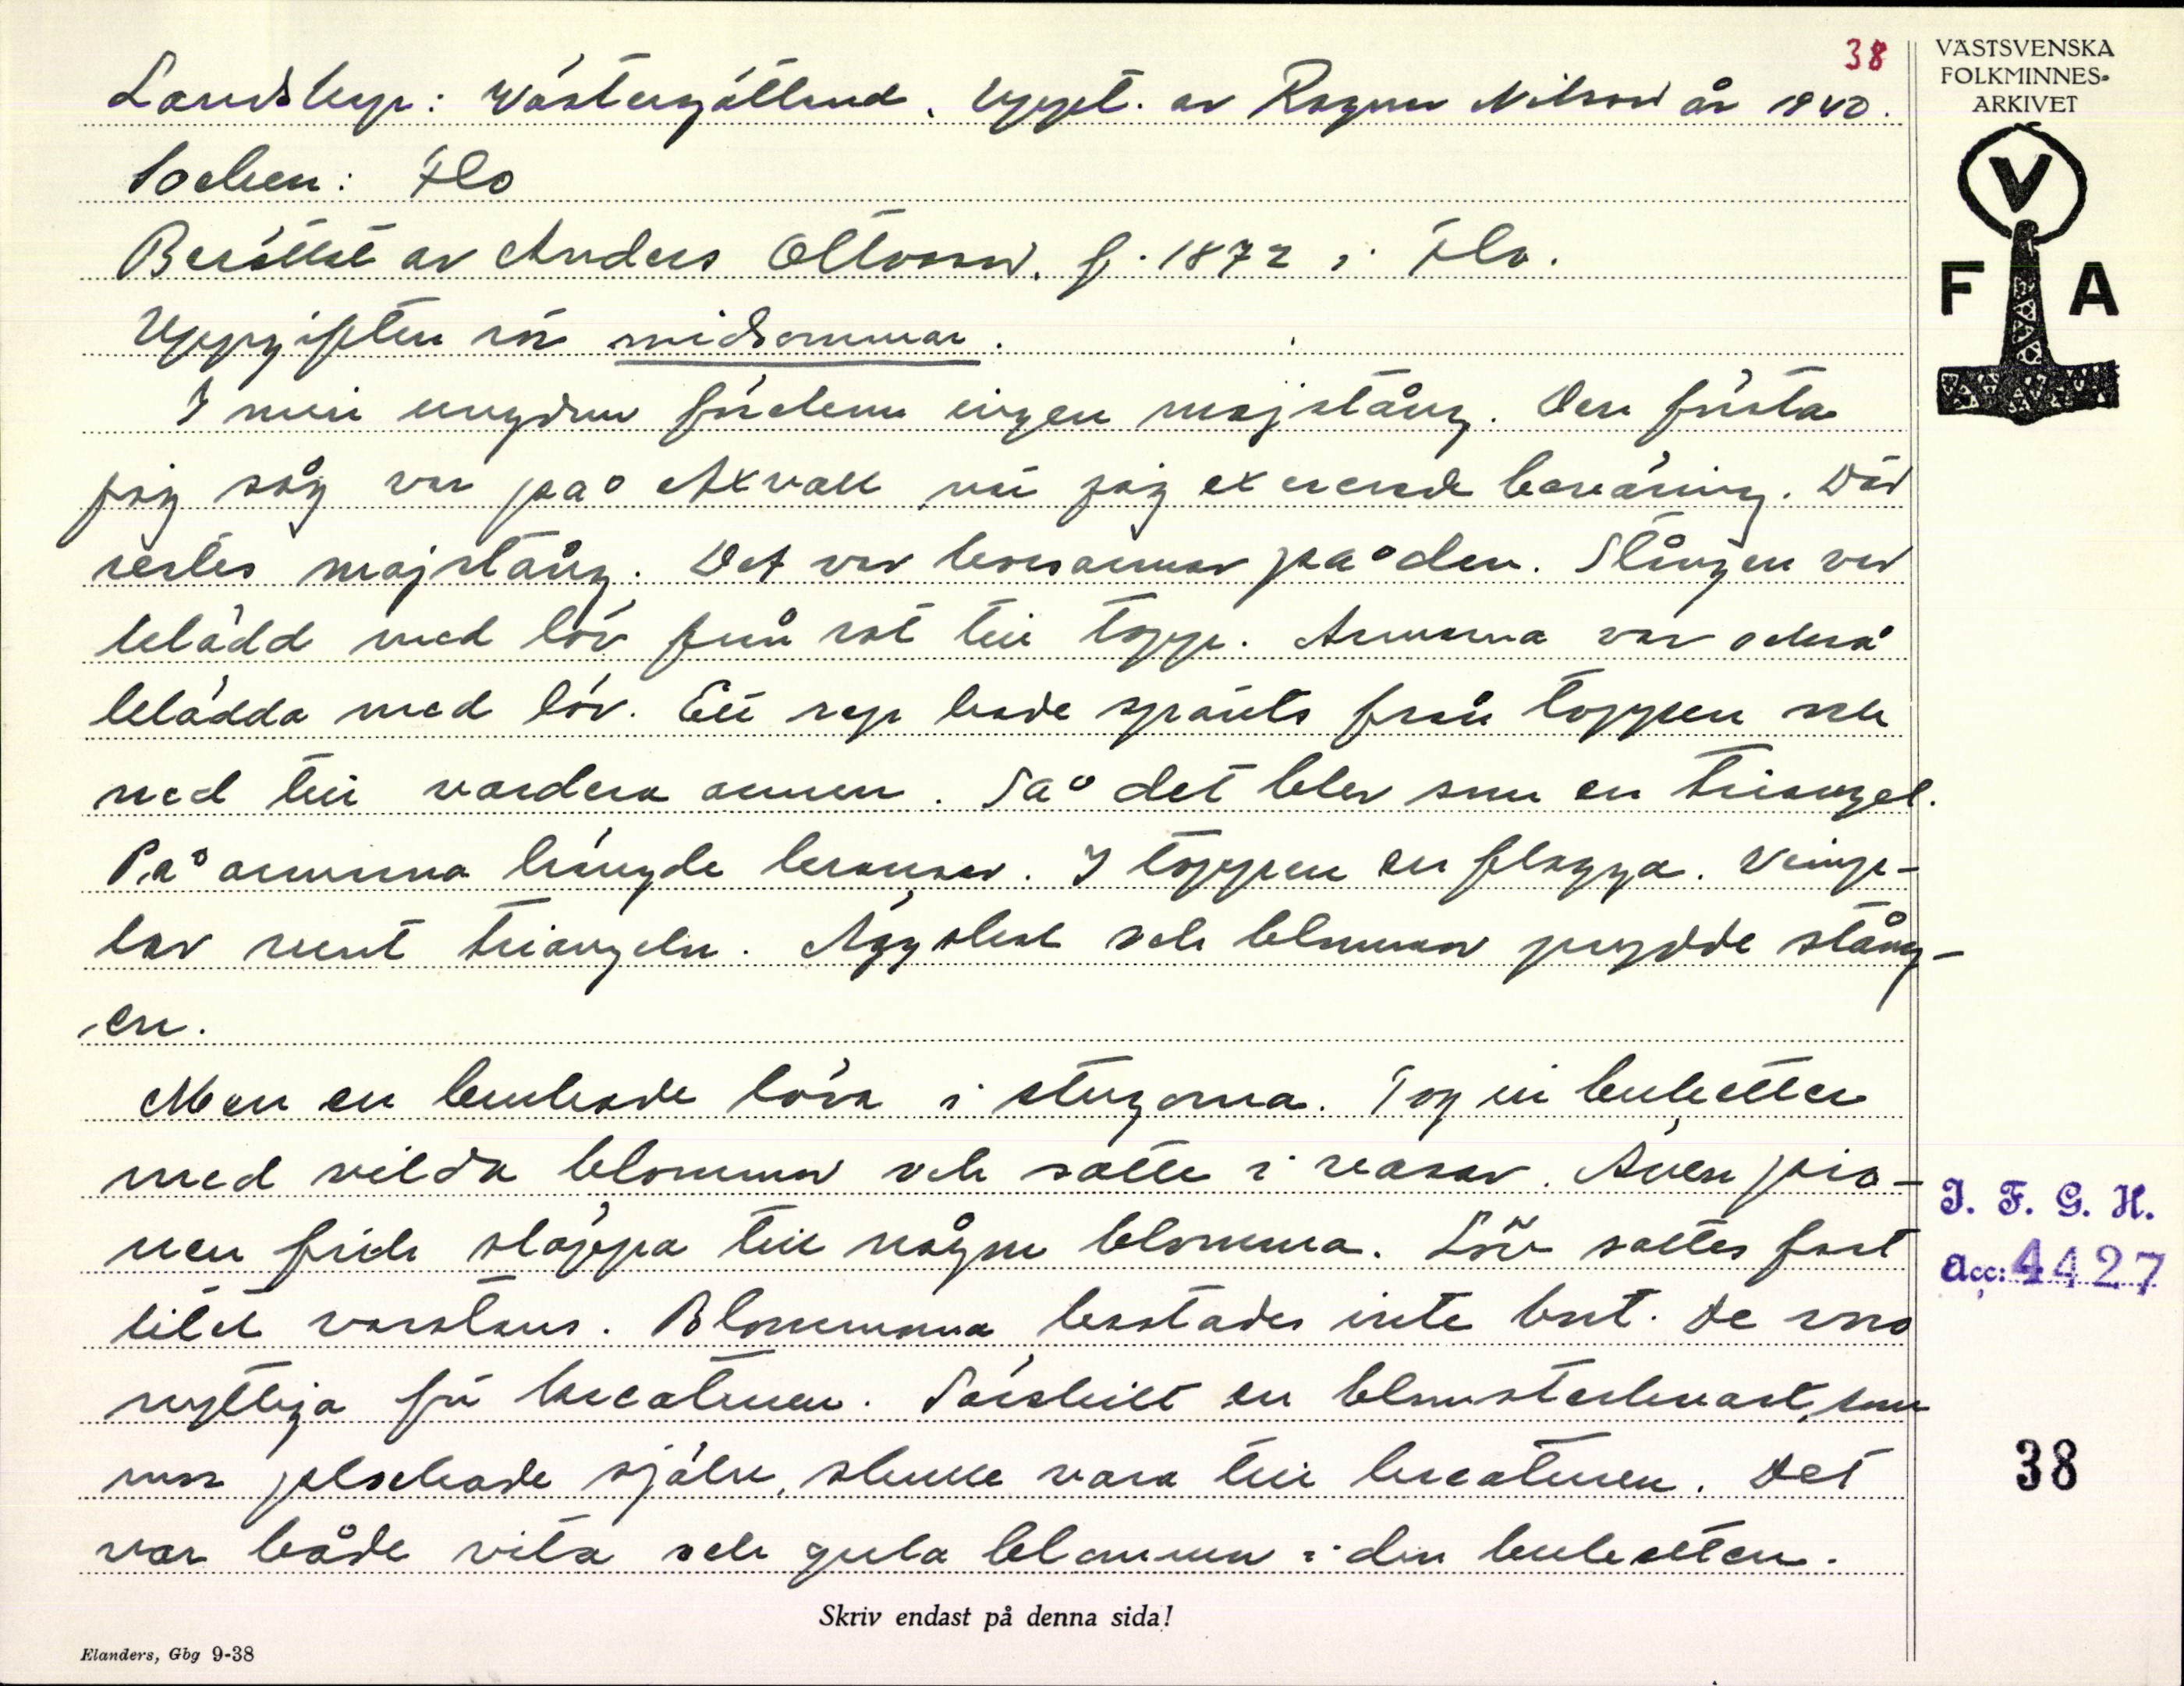 38
Landskap: Västergötland. Uppt. av Ragnar Nilsson år 1940.
Socken: Flo
Berättat av Anders Ottosson, f. 1872 i Flo.
Uppgiften rör midsommar.
I min ungdom förekom ingen majstång. Den första
jag såg var på Axvall när jag exercerade beväring. Där
restes majstång. Det var korsarmar på den. Stången var
klädd med löv från rot till topp. Armarna var också
klädda med löv. Ett rep hade spänts från toppen och
ned till vardera armen. Så det blev som en triangel.
På armarna hängde kransar. I toppen en flagga. Vimp-
lar runt triangeln. Äggskal och blommor prydde stång-
en.
Men en brukade löva i stugorna. Tog in buketter
med vilda blommor och satte i vasar. Även pio-
nen fick släppa till någon blomma. Löv sattes fast
litet varstans. Blommorna kastades inte bort. De voro
nyttiga för kreaturen. Särskilt en blomsterkvast, som
mor plockade själv, skulle vara till kreaturen. Det
var både vita och gula blommor i den buketten.
Skriv endast på denna sida!
Elanders, Gbg 9-38
VÄSTSVENSKA
FOLKMINNES-
ARKIVET
V
F A
I. F. G. H.
Acc: 4427
38